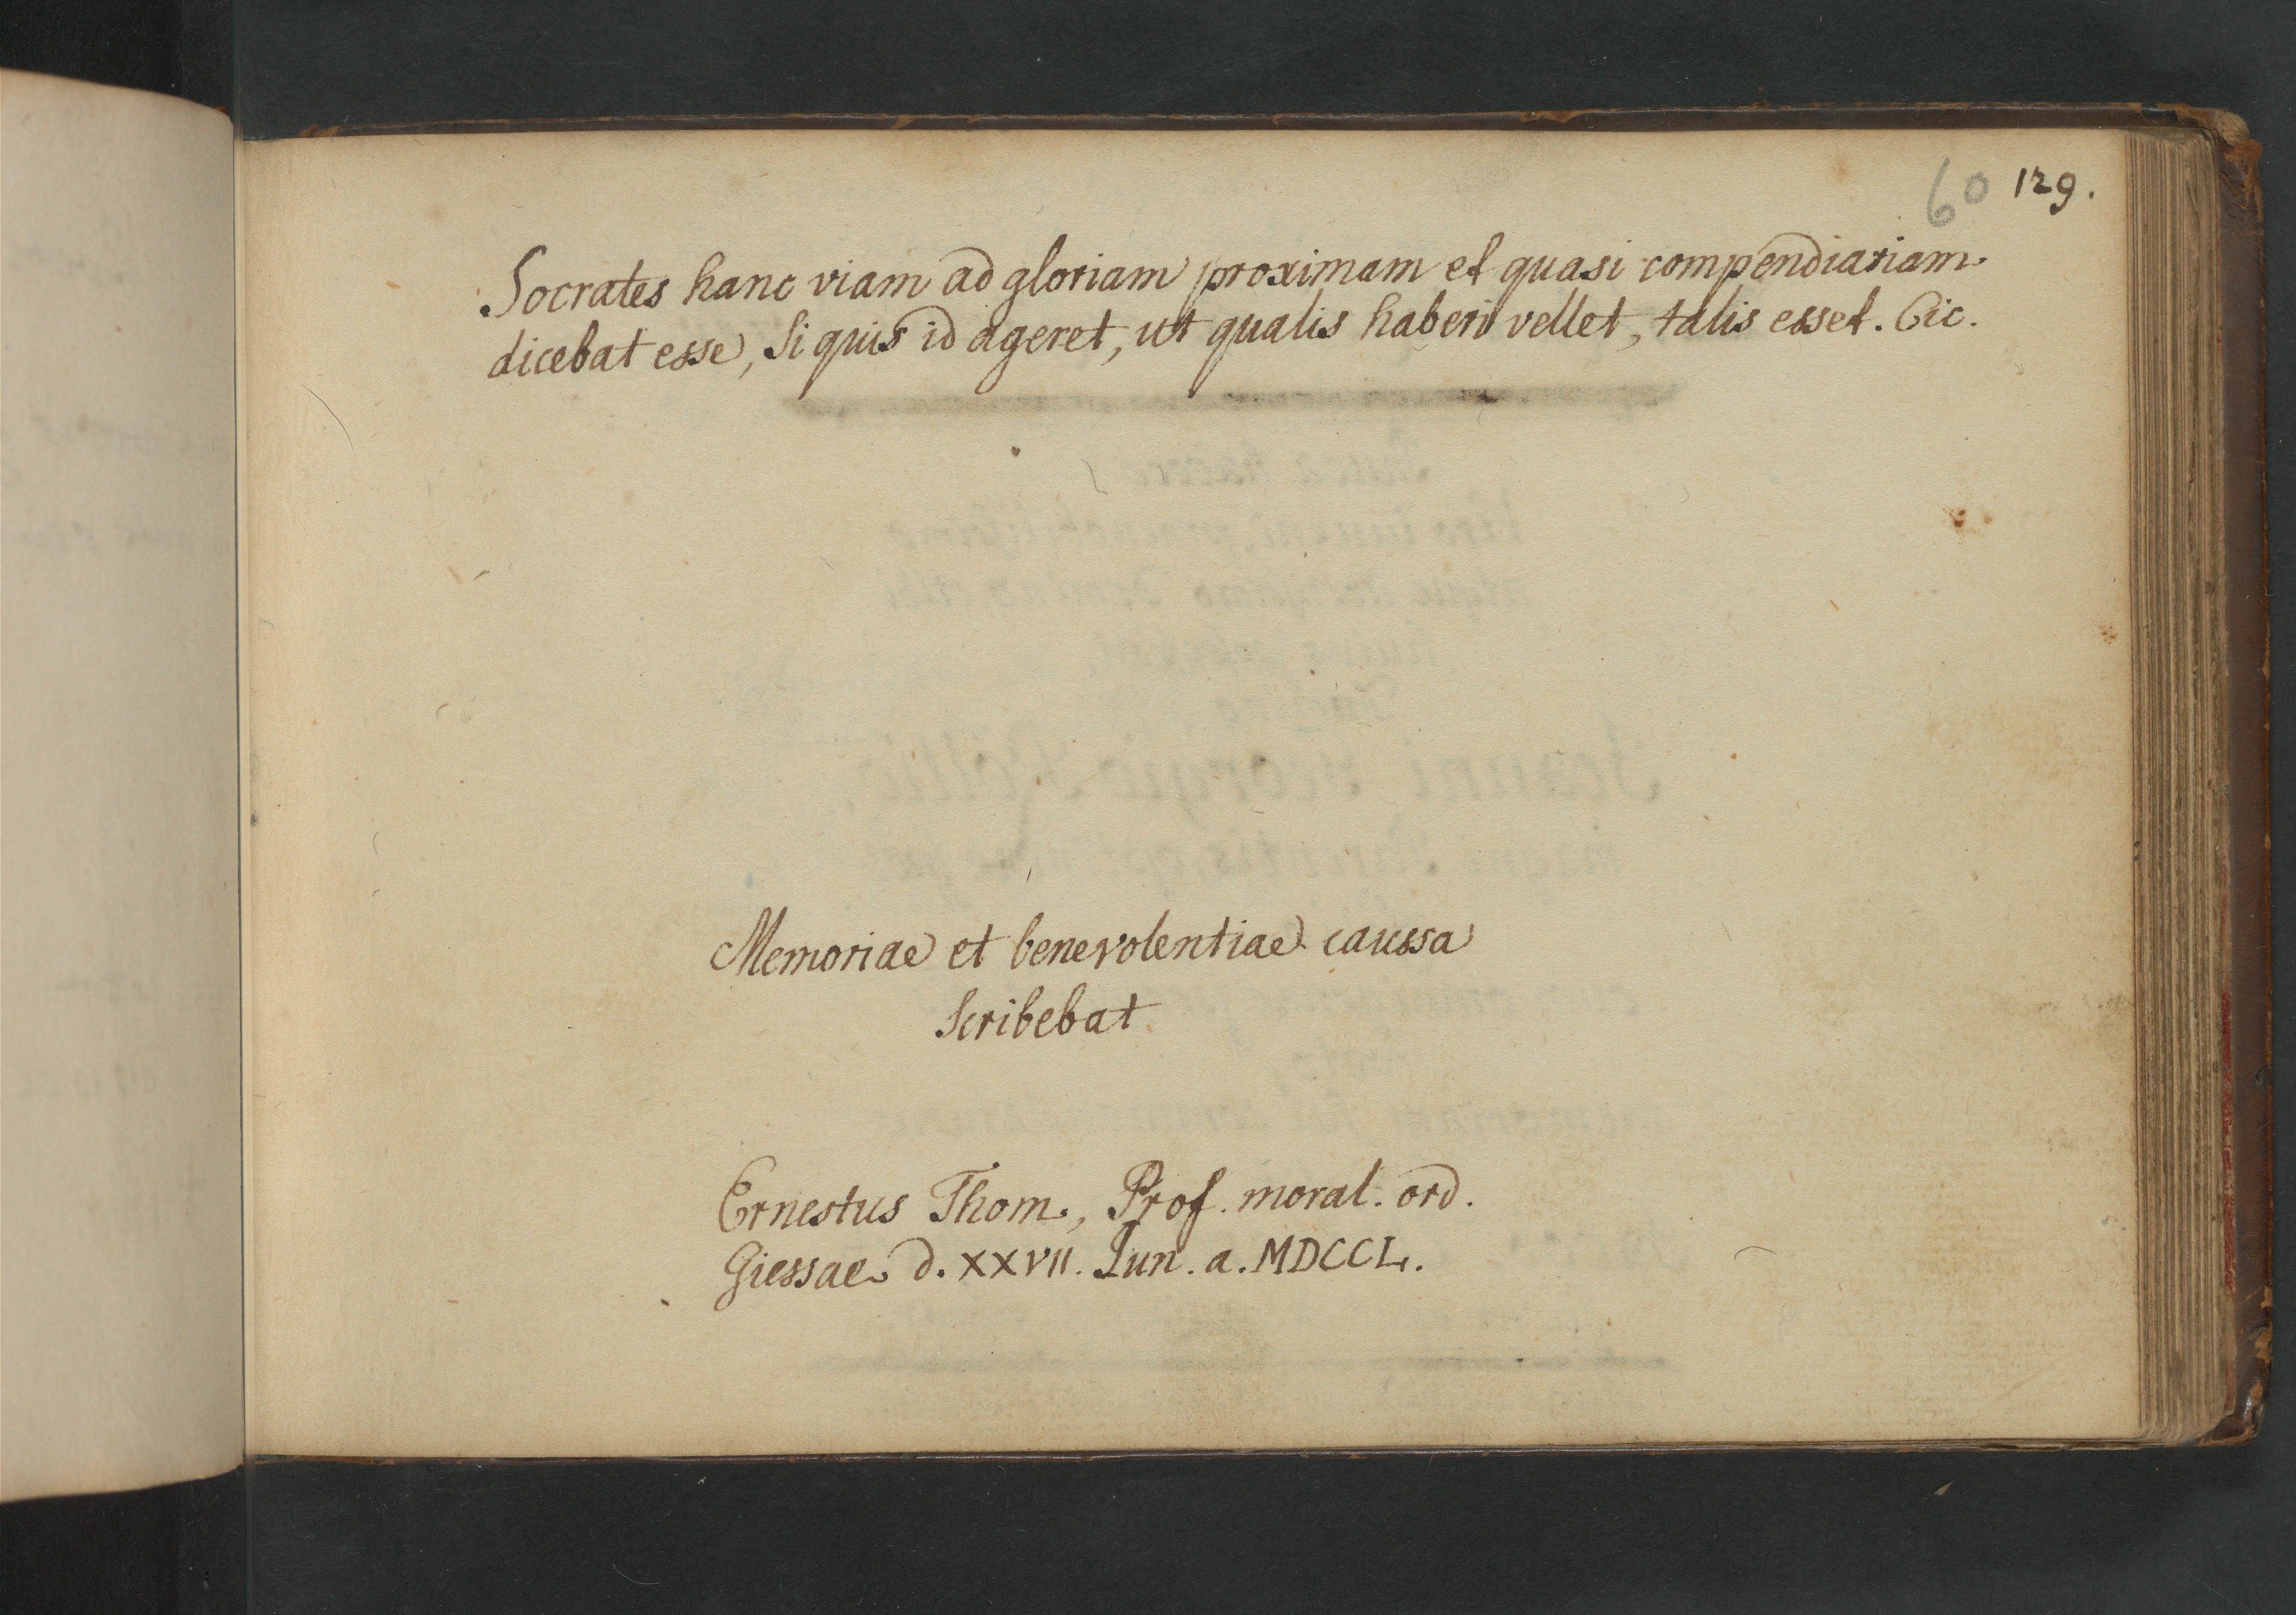 60 129.
Socrates hanc viam ad gloriam proximam et quasi compendiariam
dicebat esse, si quis id ageret, ut qualis haberi vellet, talis esset. Cic.
Memoriae et benevolentiae caussa
scribebat
Ernestus Thom., Prof. moral. ord.
Giessae d. XXVII. Iun. a. MDCCL.